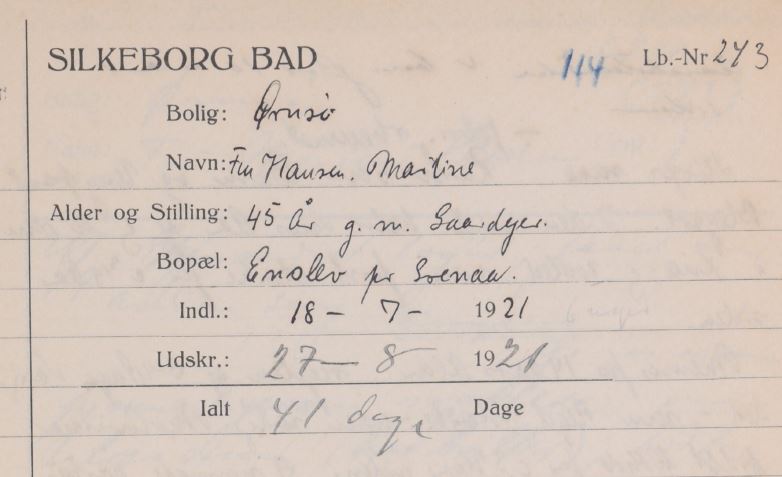 SILKEBORG BAD 114 Lb.-Nr 243
Bolig: Ørnsø
Navn: Fru Hansen. Martine
Alder og Stilling: 45 År g. m. Gaardejer.
Bopæl: Enslev pr Grenaa.
Indl.: 18 - 7 - 1921
Udskr.: 27 - 8 1921
Ialt 41 dage Dage